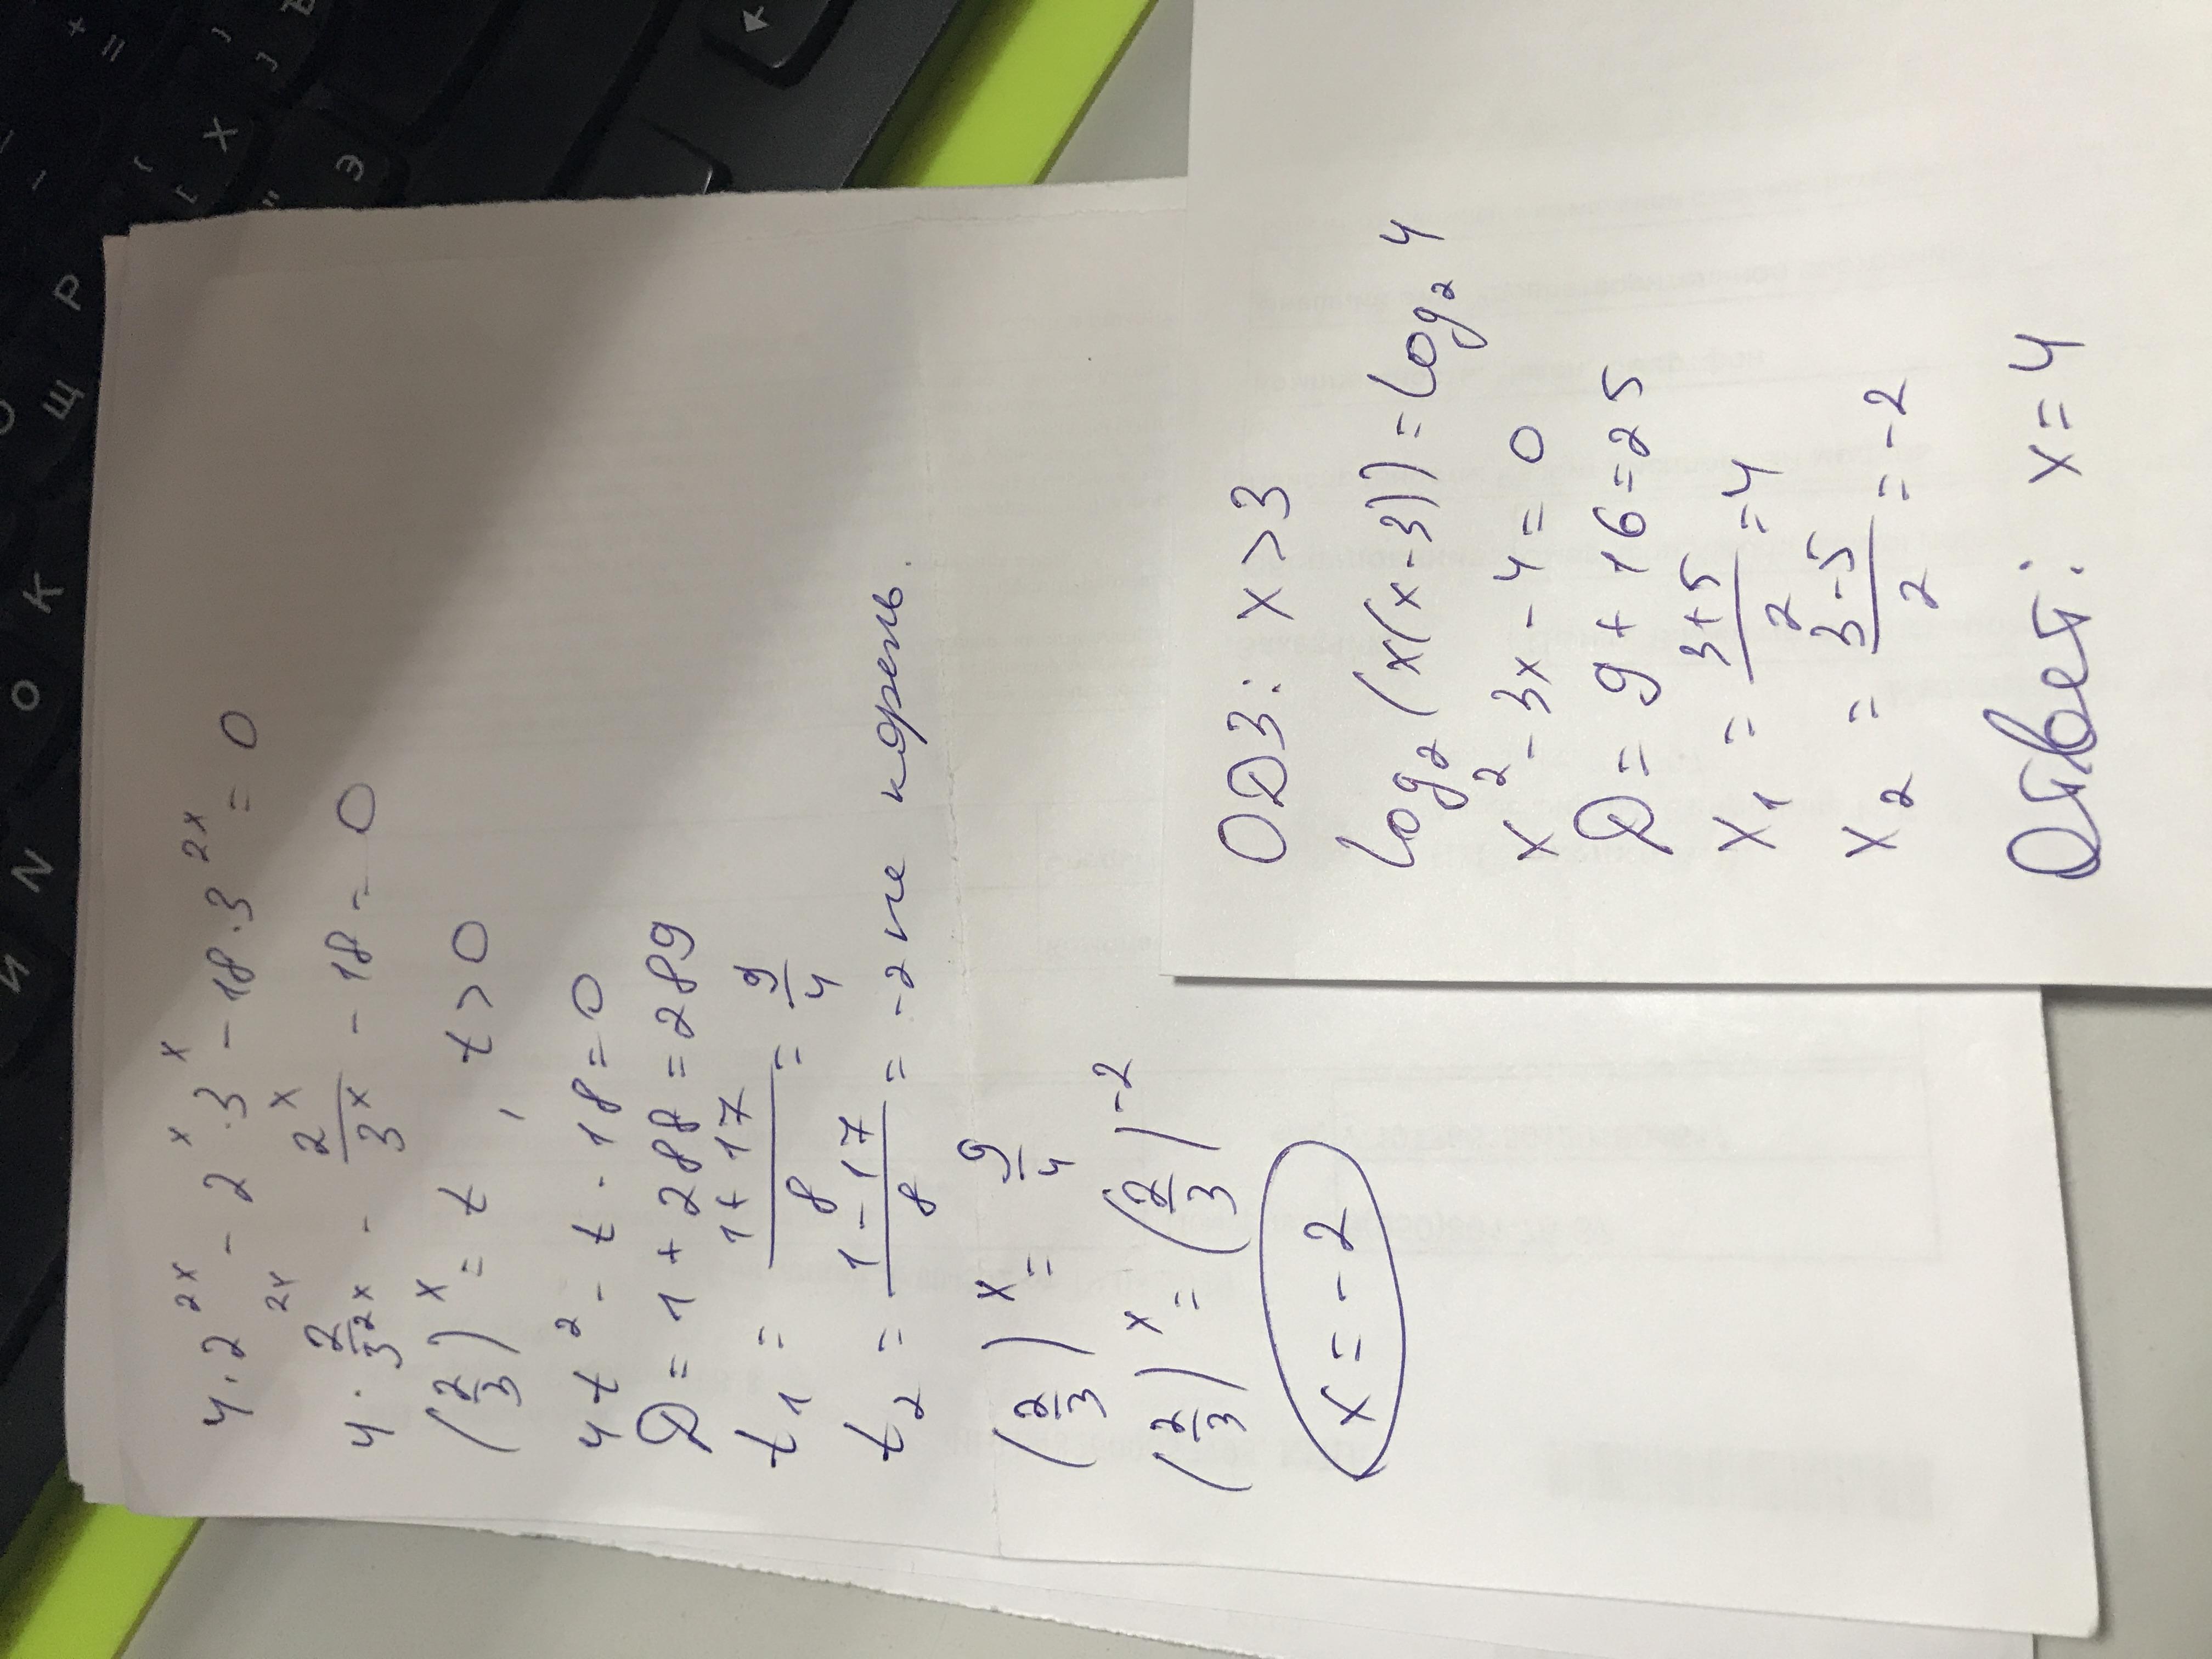 4·2^2x - 2^x·3^x - 18·3^2x = 0
4· 2^2x/3^2x - 2^x/3^x - 18 = 0
(2/3)^x = t , t > 0
4t^2 - t - 18 = 0
D = 1 + 288 = 289
t1 = (1+17)/8 = 9/4
t2 = (1-17)/8 = -2 не корень.
(2/3)^x = 9/4
(2/3)^x = (2/3)^-2
x = -2
ОДЗ: x > 3
log2 (x(x-3)) = log2 4
x^2 - 3x - 4 = 0
D = 9 + 16 = 25
x1 = (3+5)/2 = 4
x2 = (3-5)/2 = -2
Ответ: x = 4
+
=
-
Х
З
Ъ
Р
Щ
О
К
N
И